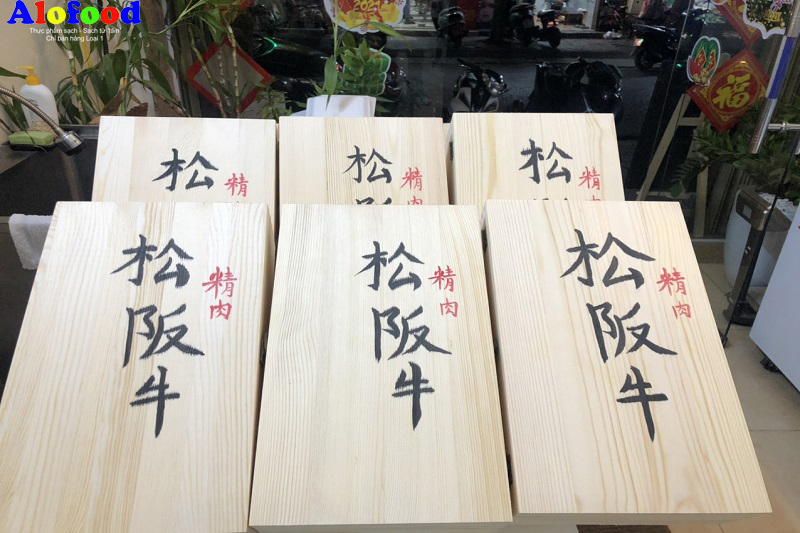 Alofood
Thực phẩm sạch - Sạch từ tâm
Chỉ bán hàng Loại 1
2021
福
松
精
松
精肉
松
精肉
松阪牛
精肉
松阪牛
精肉
松阪牛
精肉